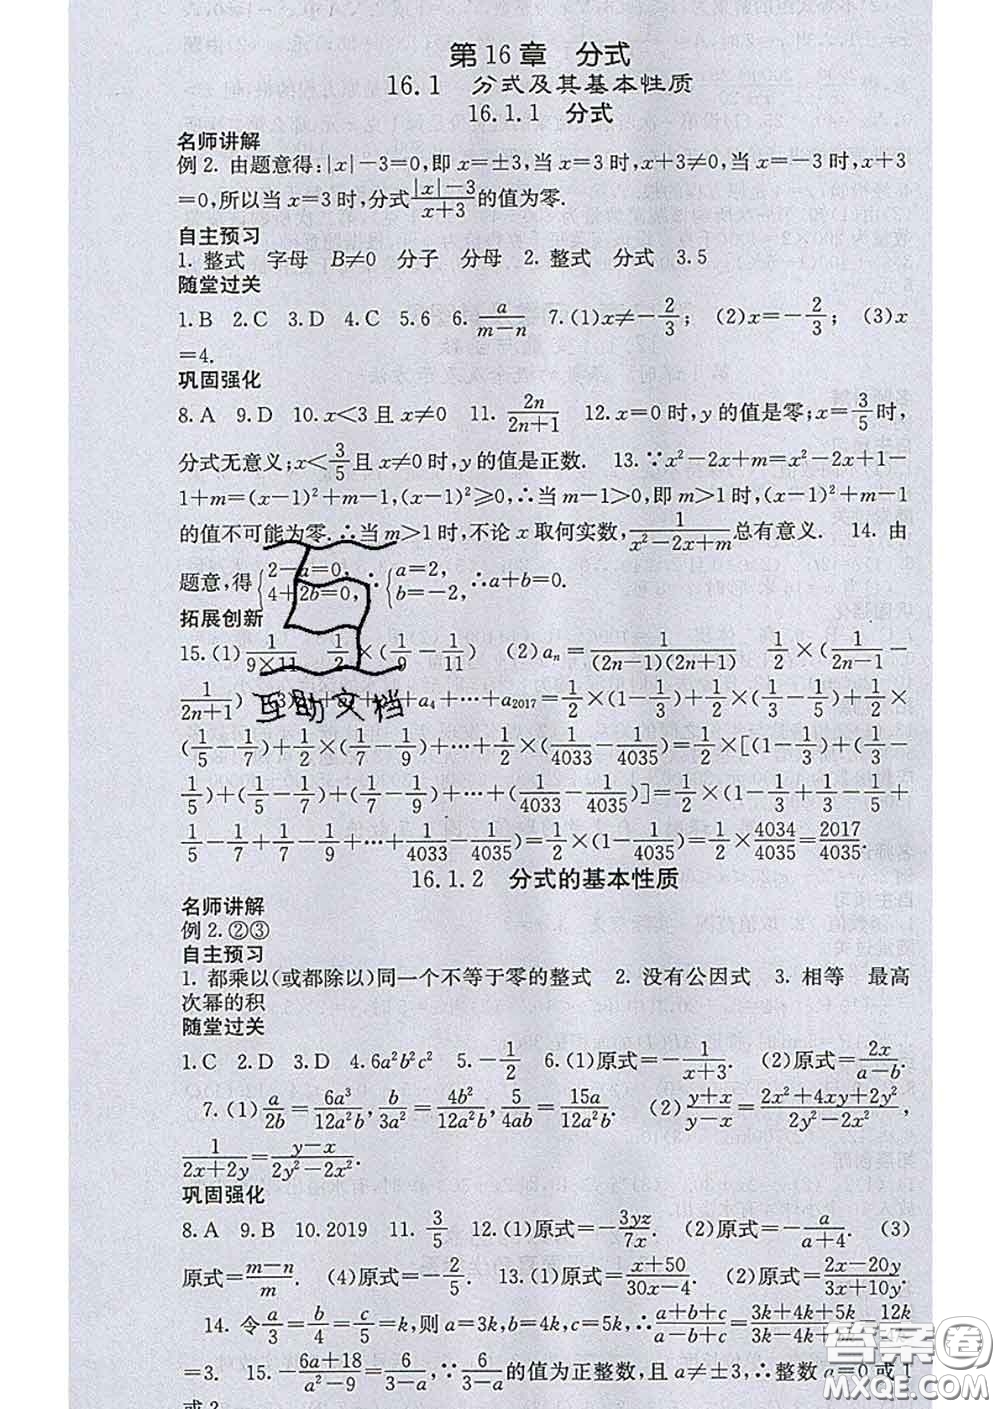 第16章 分式
16.1 分式及其基本性质
16.1.1 分式
名师讲解
例2. 由题意得:|x|-3=0,即x=±3,当x=3时,x+3≠0,当x=-3时,x+3
=0,所以当x=3时,分式(|x|-3)/(x+3)的值为零.
自主预习
1. 整式 字母 B≠0 分子 分母 2. 整式 分式 3.5
随堂过关
1.B 2.C 3.D 4.C 5.6 6. a/(m-n) 7.(1)x≠-2/3; (2)x=-2/3; (3)x
=4.
巩固强化
8.A 9.D 10.x<3且x≠0 11. 2n/(2n+1) 12.x=0时,y的值是零;x=3/5时,
分式无意义;x<3/5且x≠0时,y的值是正数. 13.∵x²-2x+m=x²-2x+1-
1+m=(x-1)²+m-1,(x-1)²≥0,∴当m-1>0,即m>1时,x²-2x+m
的值不可能为零.∴当m>1时,不论x取何实数,1/(x²-2x+m)总有意义. 14. 由
题意,得{2-a=0, 4+2b=0, ∴{a=2, b=-2, ∴a+b=0.
拓展创新
15.(1) 1/(9×11) 1/2×(1/9-1/11) (2)aₙ=1/((2n-1)(2n+1)) 1/2×(1/(2n-1)-
1/(2n+1)) (3) a₄+…+a₂₀₁₇=1/2×(1-1/3)+1/2×(1/3-1/5)+1/2×
(1/5-1/7)+1/2×(1/7-1/9)+…+1/2×(1/4033-1/4035)=1/2×[(1-1/3)+(1/3-
1/5)+(1/5-1/7)+(1/7-1/9)+…+(1/4033-1/4035)]=1/2×(1-1/3+1/3-1/5+
1/5-1/7+1/7-1/9+…+1/4033-1/4035)=1/2×(1-1/4035)=1/2×4034/4035=2017/4035.
互助文档
16.1.2 分式的基本性质
名师讲解
例2.②③
自主预习
1. 都乘以(或都除以)同一个不等于零的整式 2. 没有公因式 3. 相等 最高
次幂的积
随堂过关
1.C 2.D 3.D 4.6a²b²c² 5.-1/2 6.(1)原式=-1/(x+3). (2)原式=2x/(a-b).
7.(1)a/2b=6a³/12a²b, b/3a²=4b²/12a²b, 5/4ab=15a/12a²b. (2)(y+x)/(y-x)=(2x²+4xy+2y²)/(2y²-2x²),
1/(2x+2y)=(y-x)/(2y²-2x²).
巩固强化
8.A 9.B 10.2019 11. 3/5 12.(1)原式=-3yz/7x. (2)原式=-a/(a+4). (3)
原式=(m-n)/m. (4)原式=-2/5. 13.(1)原式=(x+50)/(30x-4). (2)原式=(2x-20y)/(3x+10y).
14. 令a/3=b/4=c/5=k,则a=3k,b=4k,c=5k,∴(a+b+c)/(a-b+c)=(3k+4k+5k)/(3k-4k+5k)=12k
=3. 15.-(6a+18)/(a²-9)=6/(3-a),∵6/(3-a)的值为正整数,且a≠±3,∴整数a=0或1
或2.
答案圈
MXQE.COM